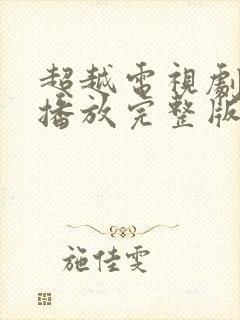 超越電視劇
播放完整版
施佳雯